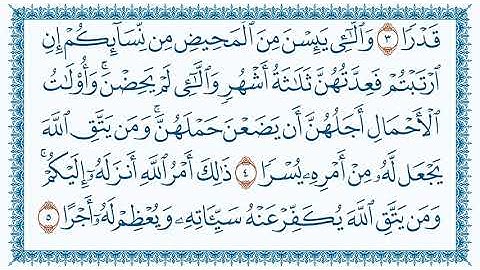 قَدْرًا ٣ وَٱلَّـٰٓـِٔى يَئِسْنَ مِنَ ٱلْمَحِيضِ مِن نِّسَآئِكُمْ إِنِ
ٱرْتَبْتُمْ فَعِدَّتُهُنَّ ثَلَـٰثَةُ أَشْهُرٍ وَٱلَّـٰٓـِٔى لَمْ يَحِضْنَ ۚ وَأُو۟لَـٰتُ
ٱلْأَحْمَالِ أَجَلُهُنَّ أَن يَضَعْنَ حَمْلَهُنَّ ۚ وَمَن يَتَّقِ ٱللَّهَ
يَجْعَل لَّهُۥ مِنْ أَمْرِهِۦ يُسْرًا ٤ ذَٰلِكَ أَمْرُ ٱللَّهِ أَنزَلَهُۥٓ إِلَيْكُمْ ۚ
وَمَن يَتَّقِ ٱللَّهَ يُكَفِّرْ عَنْهُ سَيِّـَٔاتِهِۦ وَيُعْظِمْ لَهُۥٓ أَجْرًا ٥